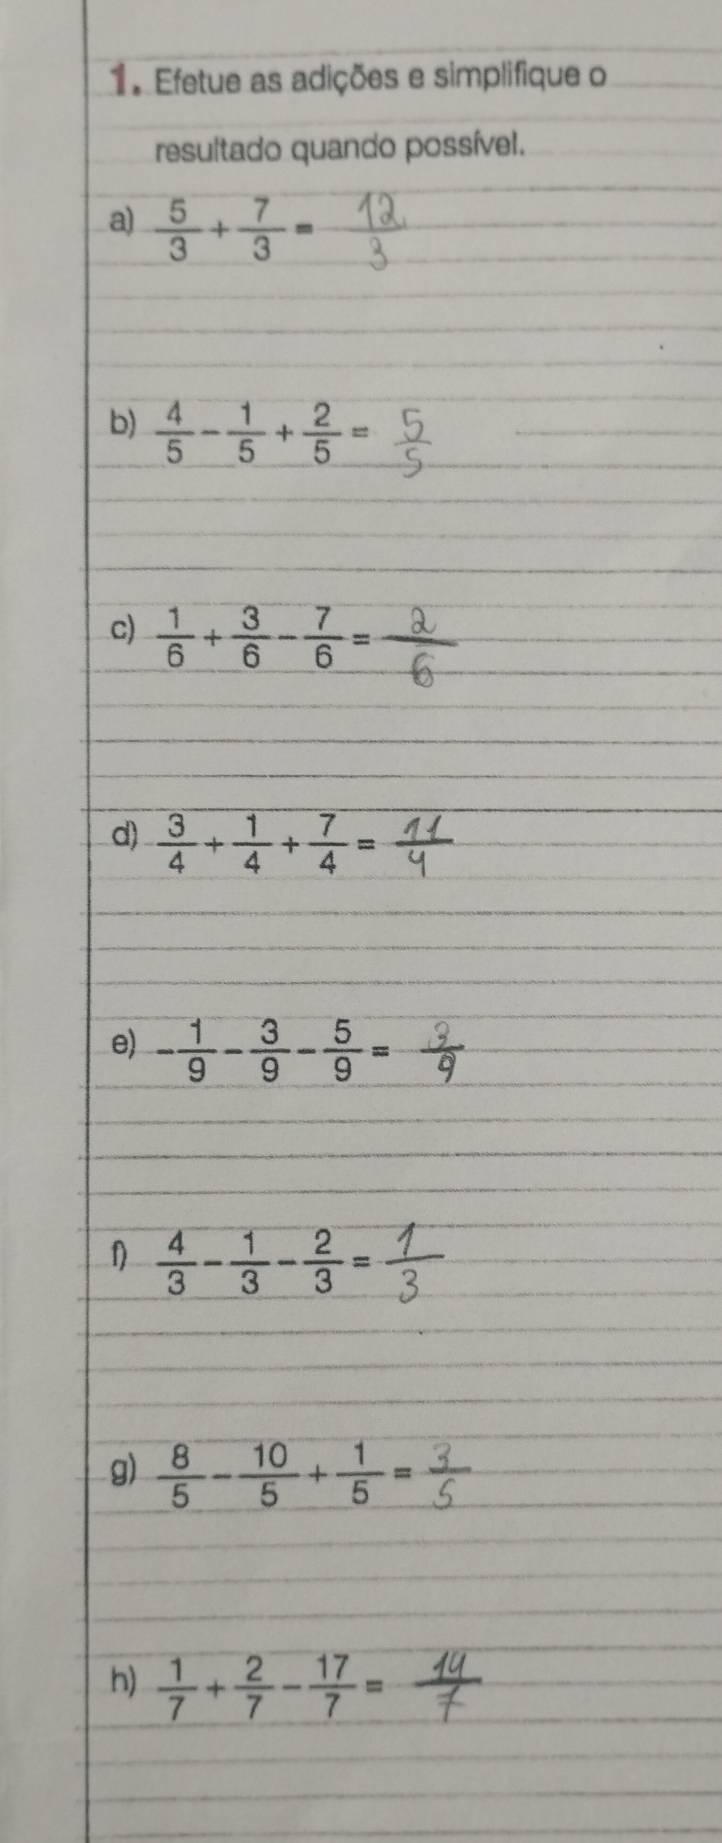 1. Efetue as adições e simplifique o
resultado quando possível.
a) 5/3 + 7/3 = 12/3
b) 4/5 - 1/5 + 2/5 = 5/5
c) 1/6 + 3/6 - 7/6 = 2/6
d) 3/4 + 1/4 + 7/4 = 11/4
e) -1/9 - 3/9 - 5/9 = 3/9
f) 4/3 - 1/3 - 2/3 = 1/3
g) 8/5 - 10/5 + 1/5 = 3/5
h) 1/7 + 2/7 - 17/7 = 14/7